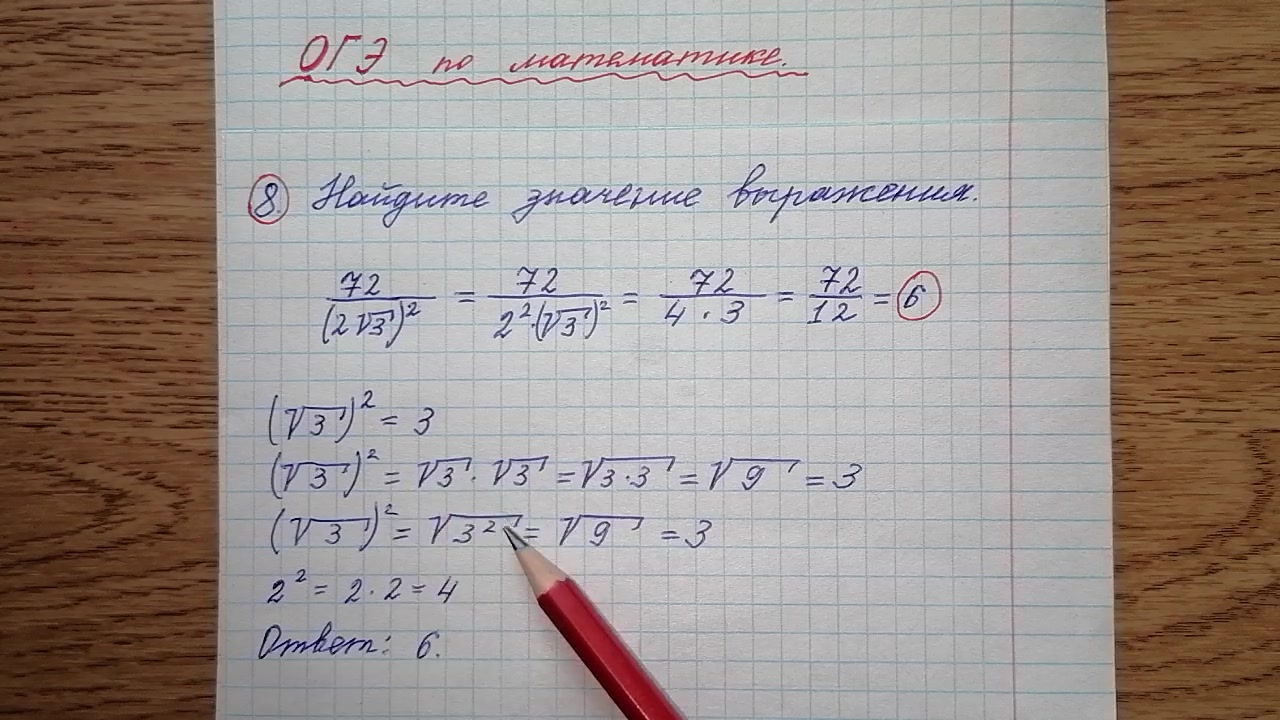 ОГЭ по математике.
8. Найдите значение выражения.
72/(2√3)² = 72/(2²·(√3)²) = 72/(4·3) = 72/12 = 6
(√3)² = 3
(√3)² = √3·√3 = √3·3 = √9 = 3
(√3)² = √3² = √9 = 3
2² = 2·2 = 4
Ответ: 6.